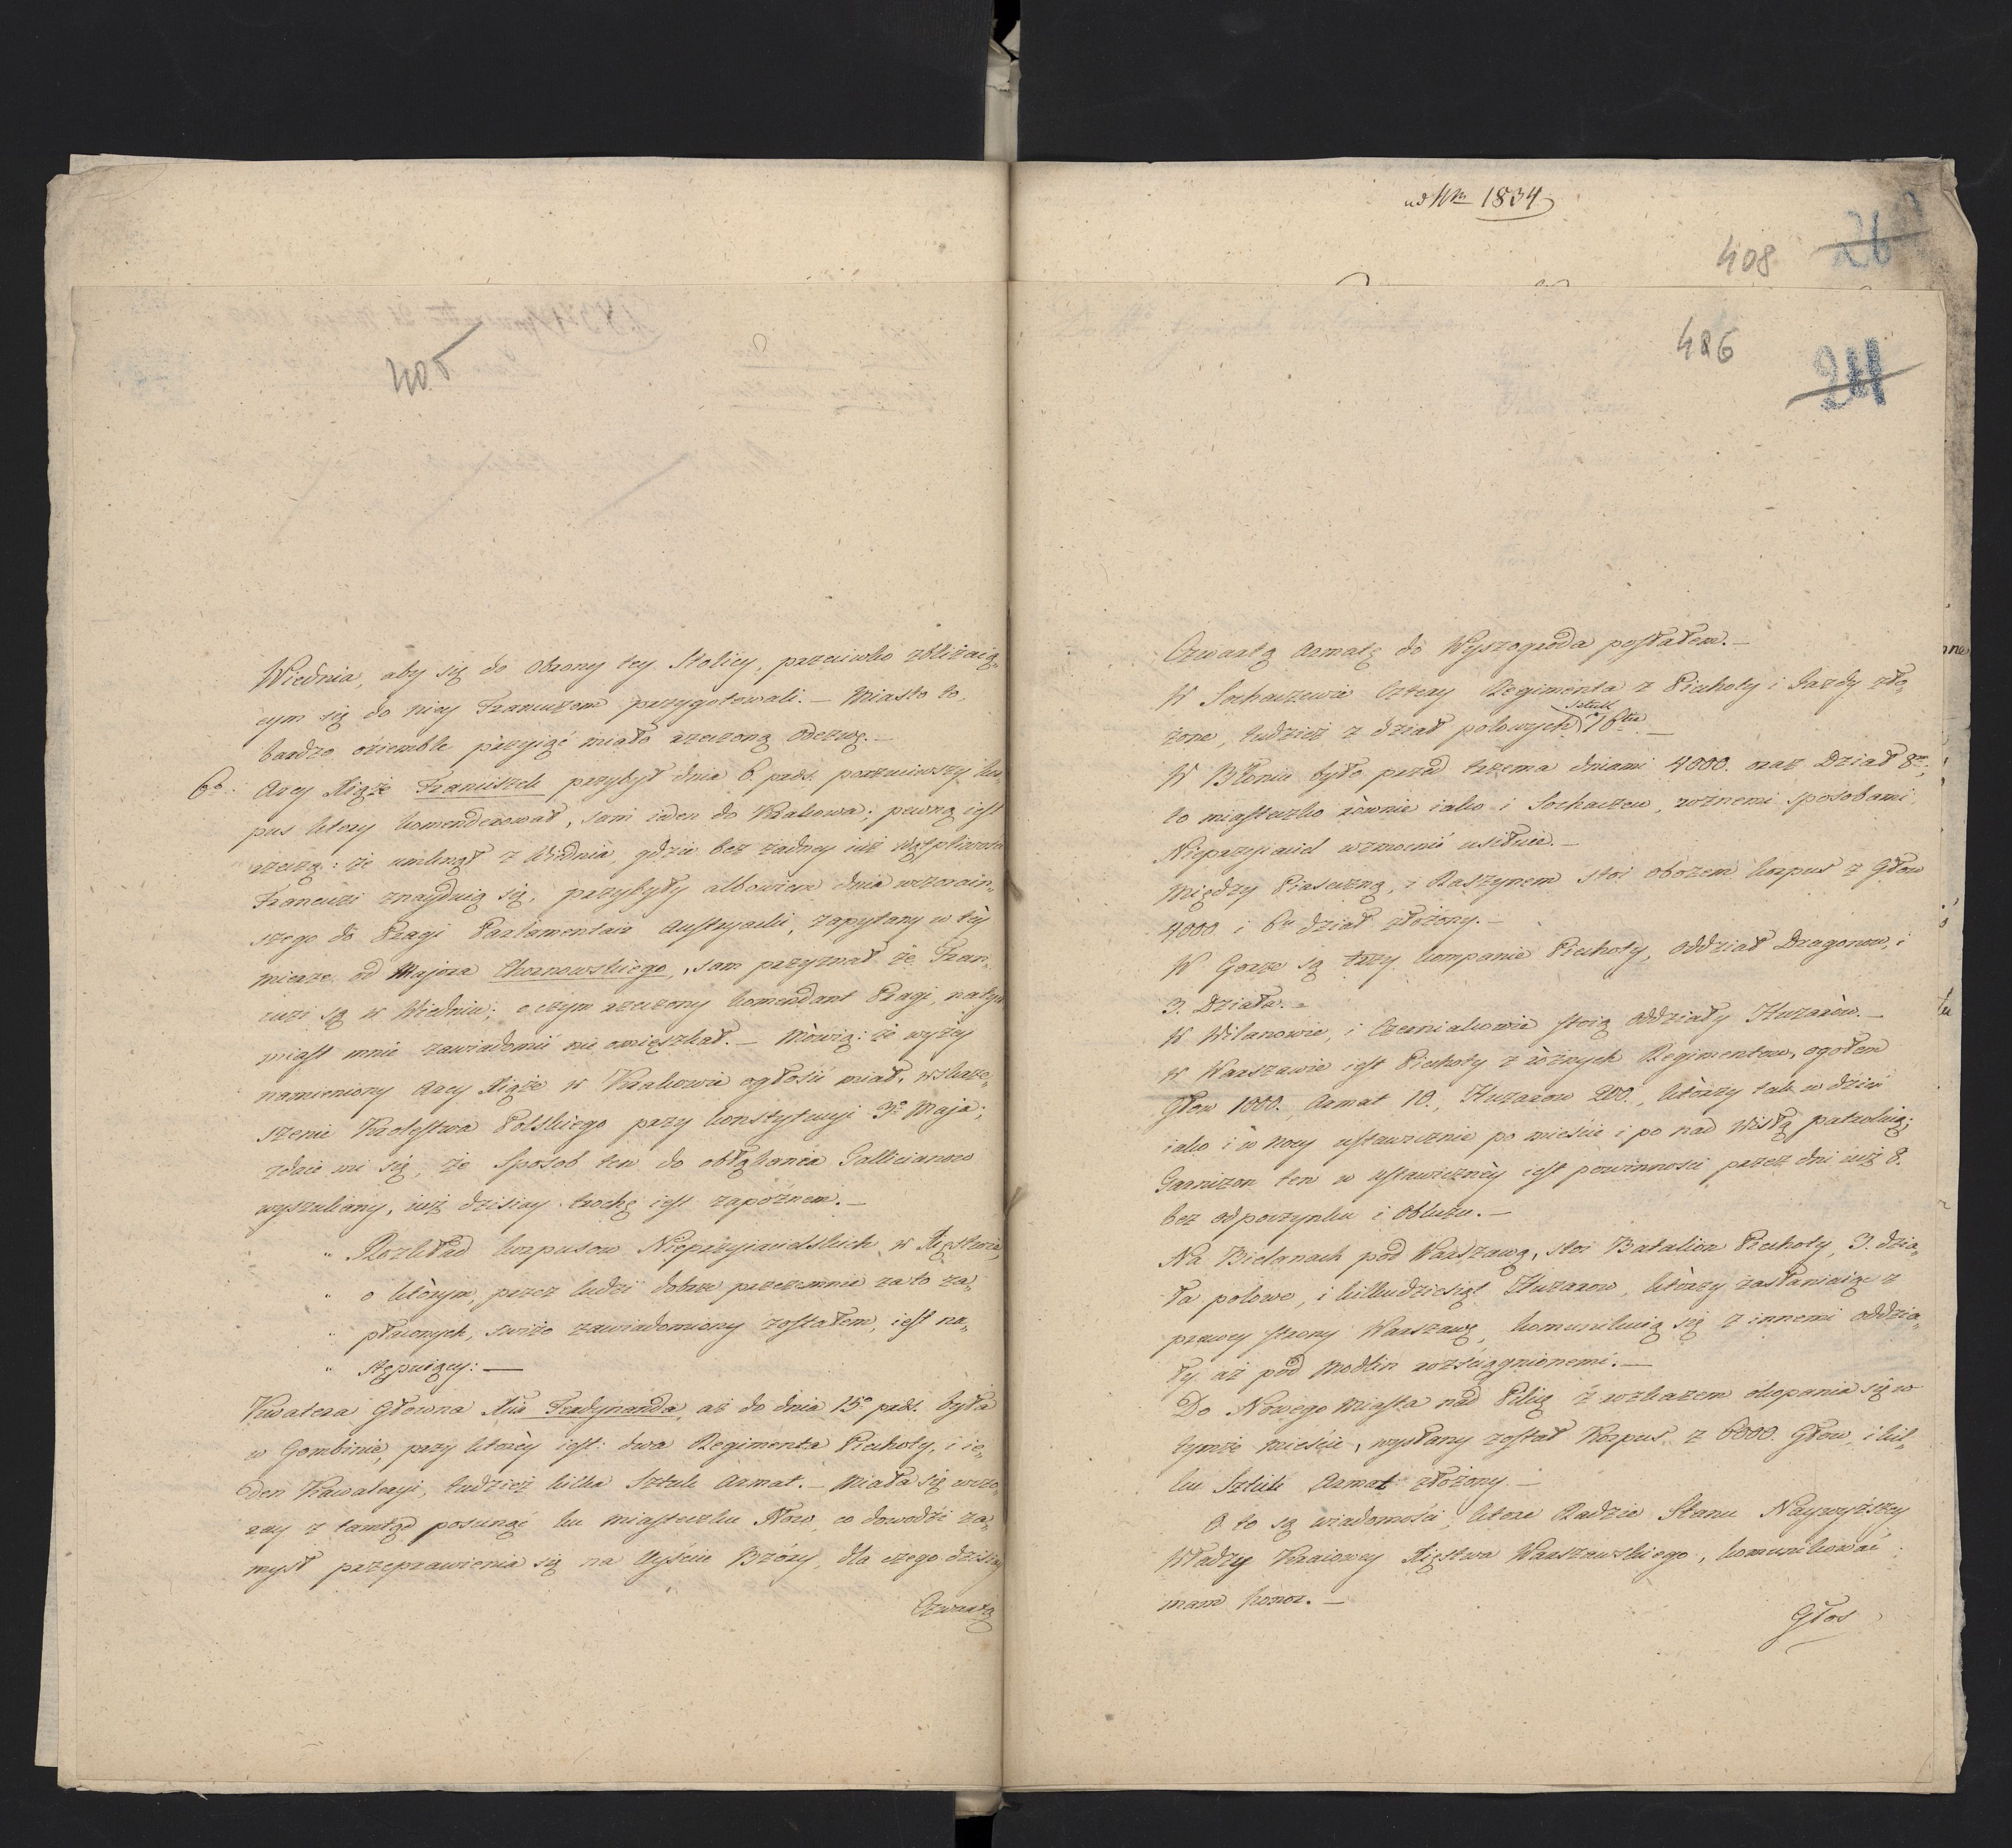 405
Wiednia, aby się do obrony tey Stolicy, przeciwko zbliżaią„
cym się do niey Francuzom przygotowali. — Miasto to,
bardzo oziemble przyiąć miało rzeczoną odezwę. —
6o. Arcy Xiąże Franciszek przybył dnia 6. prds. porzuciwszy kor„
pus ktory komenderował, sam ieden do Krakowa; pewną iest
rzeczą: że umknął z Wiednia, gdzie bez żadney iuż wątpliwości
Francuzi znayduią się, przybyły albowiem dnia wczorain„
szego do Pragi Parlamentair Austryacki, zapytany w téy
mierze od Majora Chornowskiego, sam przyznał że Fran„
cuzi są w Wiedniu; o czym rzeczony komendant Pragi, natych
miast mnie zawiadomić nie omięszkał. — Mówią: że wyżey
namieniony Arcy Xiąże w Krakowie ogłosić miał, wskrze„
szenie Krolestwa Polskiego przy konstytucyi 3o Maja;
zdaie mi się, że sposob ten do obłąkania Gallicianow
wyszukany, iuż dzisiay trochę iest zapóźnem. —
„ Rozkład korpusow Nieprzyiacielskich w Xięstwie,
„ o którym, przez ludzi dobrze przezemnie za to za„
„ płaconych, świżo zawiadomiony zostałem, iest na„
„ stępuiący: —
Kwatera Głowna Xcia Ferdynanda, aż do dnia 15o prds. była
w Gombinie, przy któréy iest: dwa Regimenta Piechoty, i ie„
den Kawaleryi, tudzież kilka Sztuk Armat. — Miała się wczo„
ray z tamtąd posunąć ku miasteczku Iłow, co dowodzi za„
mysł przeprawienia się na Uyście Bzóry, dla czego dzisiay
Czwartą
ad Nrm 1834
408
26
486
24
Czwartą armatę do Wyszogroda posłałem. —
W Sochaczewie Cztery Regimenta z Piechoty i Jazdy zło„
żone, tudzież z dział polowych Sztuk 16tu —
W Błoniu było przed trzema dniami 4000. oraz Dział 8m;
to miasteczko równie iako i Sochaczew, rożnemi sposobami
Nieprzyiaciel wzmocnić usiłuie. —
Między Piaseczną, i Raszynem stoi obozem korpus z Głow
4000 i 6u dział złożony. —
W Gorze są trzy kompanie Piechoty, oddział Dragonow, i
3. Działa. —
W Wilanowie, i Czerniakowie stoią oddziały Huzarów. —
w Warszawie iest Piechoty z różnych Regimentow, ogołem
Głow 1000. Armat 10., Huzarow 200., którzy tak w dzień
iako i w nocy ustawicznie po mieście i po nad Wisłą patroluią;
Garnizon ten w ustawiczney iest powinności przez dni iuż 8.
bez odpoczynku i obluzu. —
Na Bielanach pod Warszawą, stoi Batalion Piechoty, 3. dzia„
ła polowe, i kilkudziesiąt Huzarow, którzy zasłaniaiąc z
prawey strony Warszawę, komunikuią się z innemi oddzia„
ły aż pod Modlin rozściągnionemi. —
Do Nowego Miasta nad Pilicą z rozkazem okopania się w
tymże mieście, wysłany został Korpus z 6000. Głow, i kil„
ku Sztuk Armat złożony. —
O to są wiadomości, ktore Radzie Stanu Naywyższey
Władzy Kraiowey Xięstwa Warszawskiego, komunikować
mam honor. —
Głos